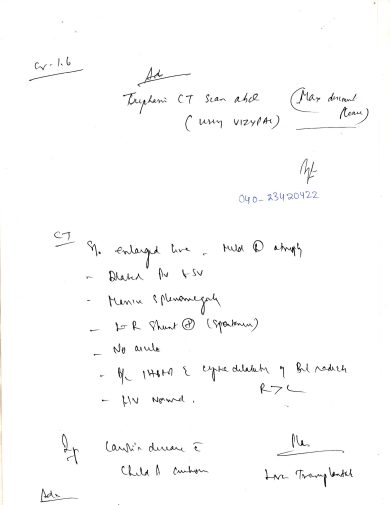 Cr - 1.6
Adv
Triphasic CT Scan abd (Max discount
(Using VIZIPAC) Please)
040-23420422
CT
S/o enlarged liver, Mild R atrophy
- Dilated PV & SV
- Massive Splenomegaly
- L-R Shunt + (Spontaneous)
- No ascites
- B/L IHBRD & cystic dilatation of Bil radicles
R > L
- LIV Normal.
Imp Caroli's disease c̄ Plan
Child A cirrhosis Liver Transplantation
Adv